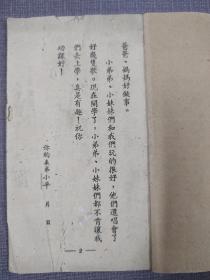 爸爸、媽媽好做事。
小弟弟、小妹妹們和我們玩的很好,他們還唱會了
好幾隻歌。現在開學了,小弟弟、小妹妹們都不肯讓我
們去上學,真是有趣!祝你
功課好!
你的表弟小平
月 日
—2—